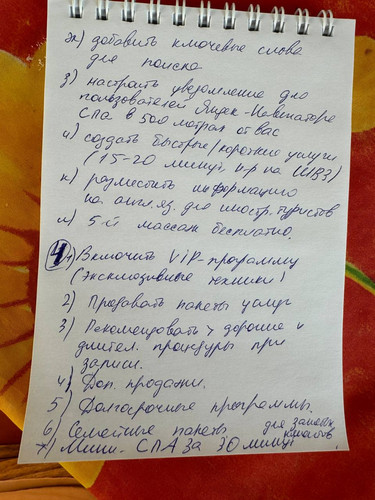 ж) добавить ключевые слова
для поиска
з) настроить уведомление для
пользователей Яндек-Навигаторе
СПА в 500 метрах от вас
и) создать быстрые/короткие услуги
(15-20 минут, н-р на ШВЗ)
к) разместить информацию
на англ.яз. для иностр. туристов
л) 5-й массаж бесплатно.
4 1) Включить VIP-программу
(эксклюзивные техники)
2) Продавать пакеты услуг
3) Рекомендовать > дорогие и
длител. процедуры при
записи.
4) Доп. продажи.
5) Долгосрочные программы.
6) Семейные пакеты для
7) Мини-СПА за 30 минут